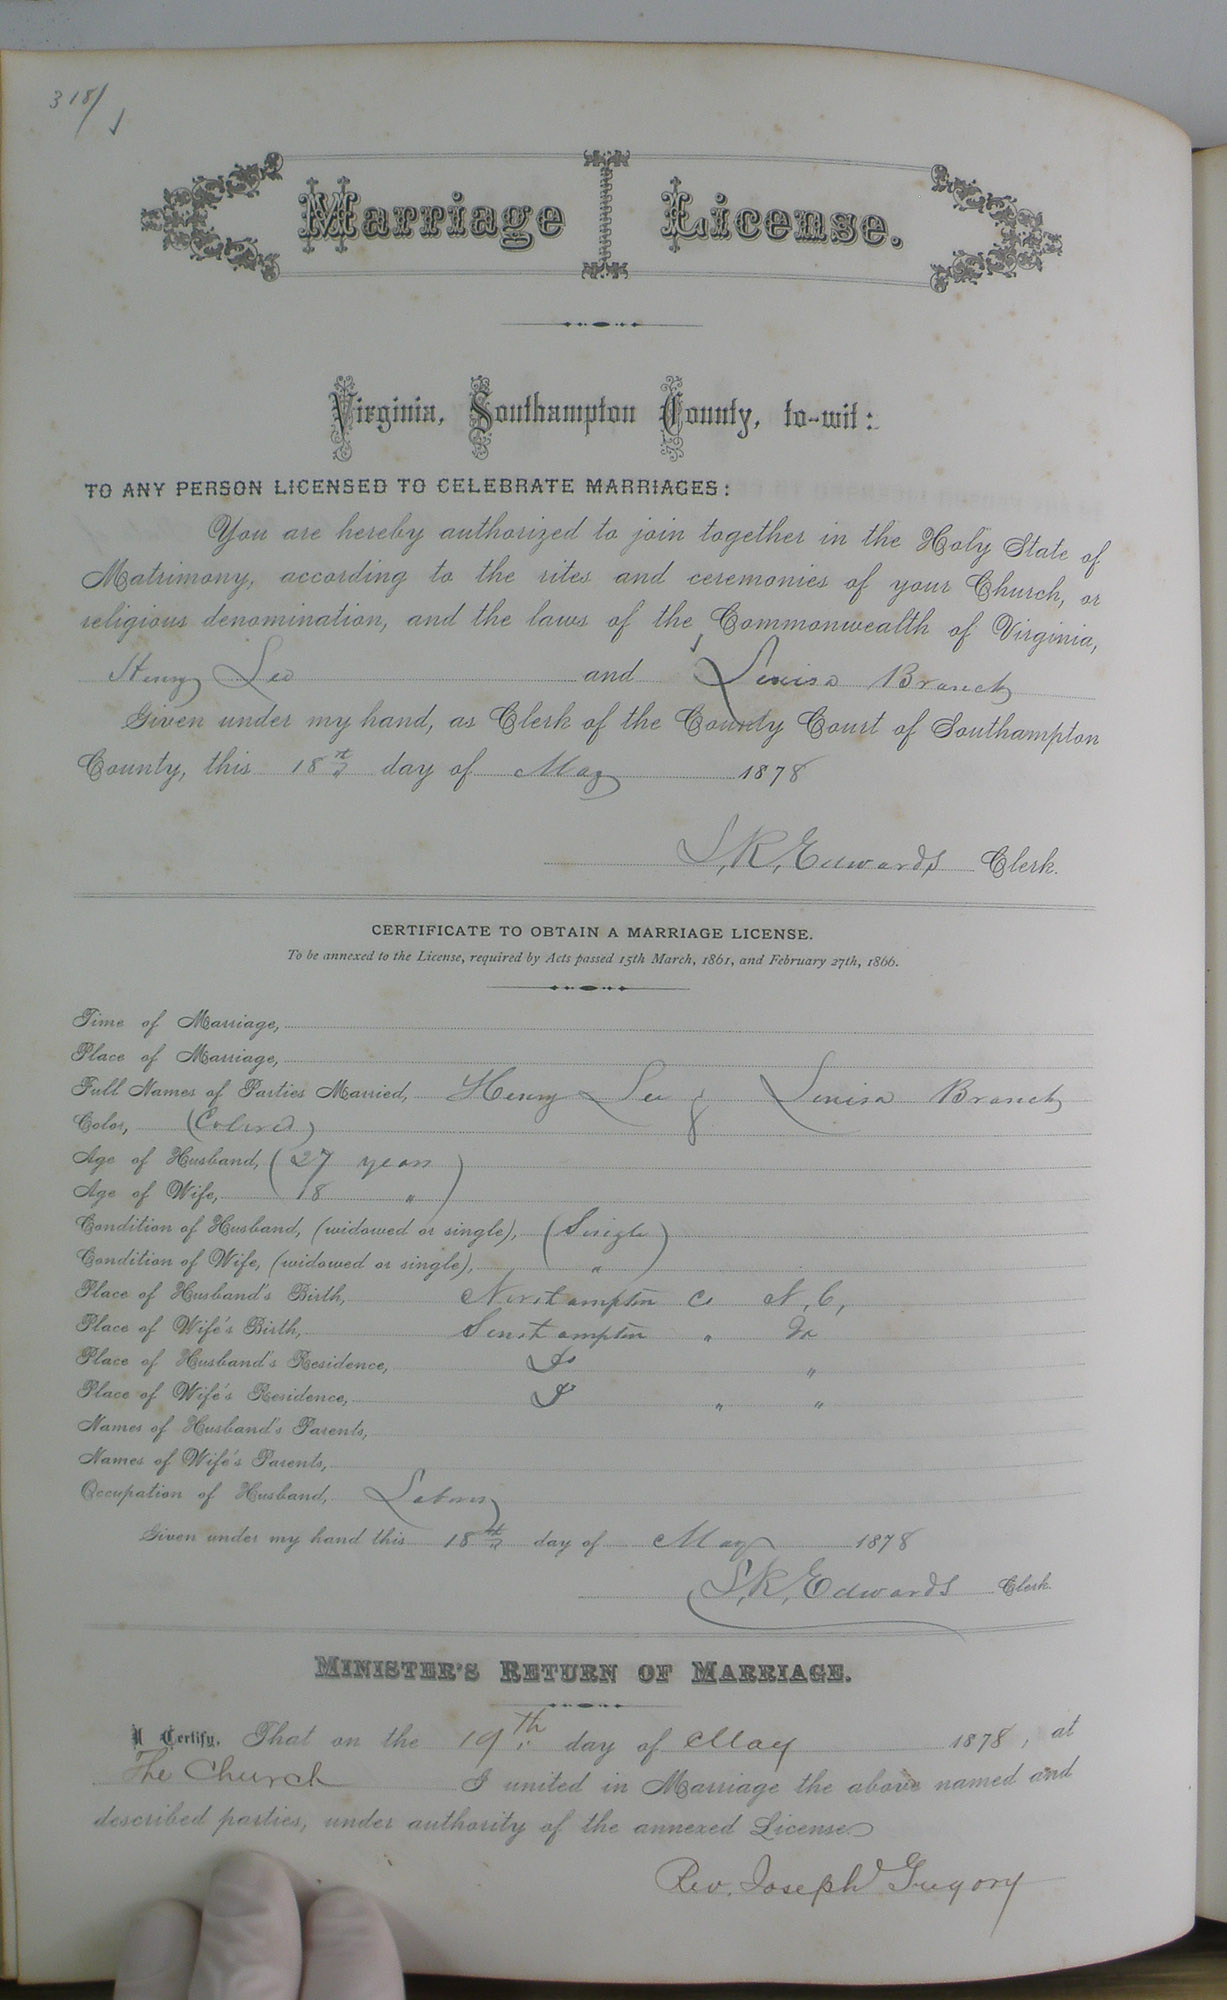 318/
Marriage License.
Virginia, Southampton County, to-wit:
TO ANY PERSON LICENSED TO CELEBRATE MARRIAGES:
You are hereby authorized to join together in the Holy State of
Matrimony, according to the rites and ceremonies of your Church, or
religious denomination, and the laws of the Commonwealth of Virginia,
Henry Lee and Louisa Branch
Given under my hand, as Clerk of the County Court of Southampton
County, this 18th day of May 1878
S, R, Edwards Clerk.
CERTIFICATE TO OBTAIN A MARRIAGE LICENSE.
To be annexed to the License, required by Acts passed 15th March, 1861, and February 27th, 1866.
Time of Marriage,
Place of Marriage,
Full Names of Parties Married, Henry Lee & Louisa Branch
Color, (Colored)
Age of Husband, (27 years)
Age of Wife, 18 "
Condition of Husband, (widowed or single), (Single)
Condition of Wife, (widowed or single), "
Place of Husband's Birth, Northampton Co N, C,
Place of Wife's Birth, Southampton " Va
Place of Husband's Residence, Do "
Place of Wife's Residence, Do " "
Names of Husband's Parents,
Names of Wife's Parents,
Occupation of Husband, Labor
Given under my hand this 18th day of May 1878
S, R, Edwards Clerk.
MINISTER'S RETURN OF MARRIAGE.
I Certify, That on the 19th day of May 1878, at
The Church I united in Marriage the above named and
described parties, under authority of the annexed License.
Rev. Joseph Gregory